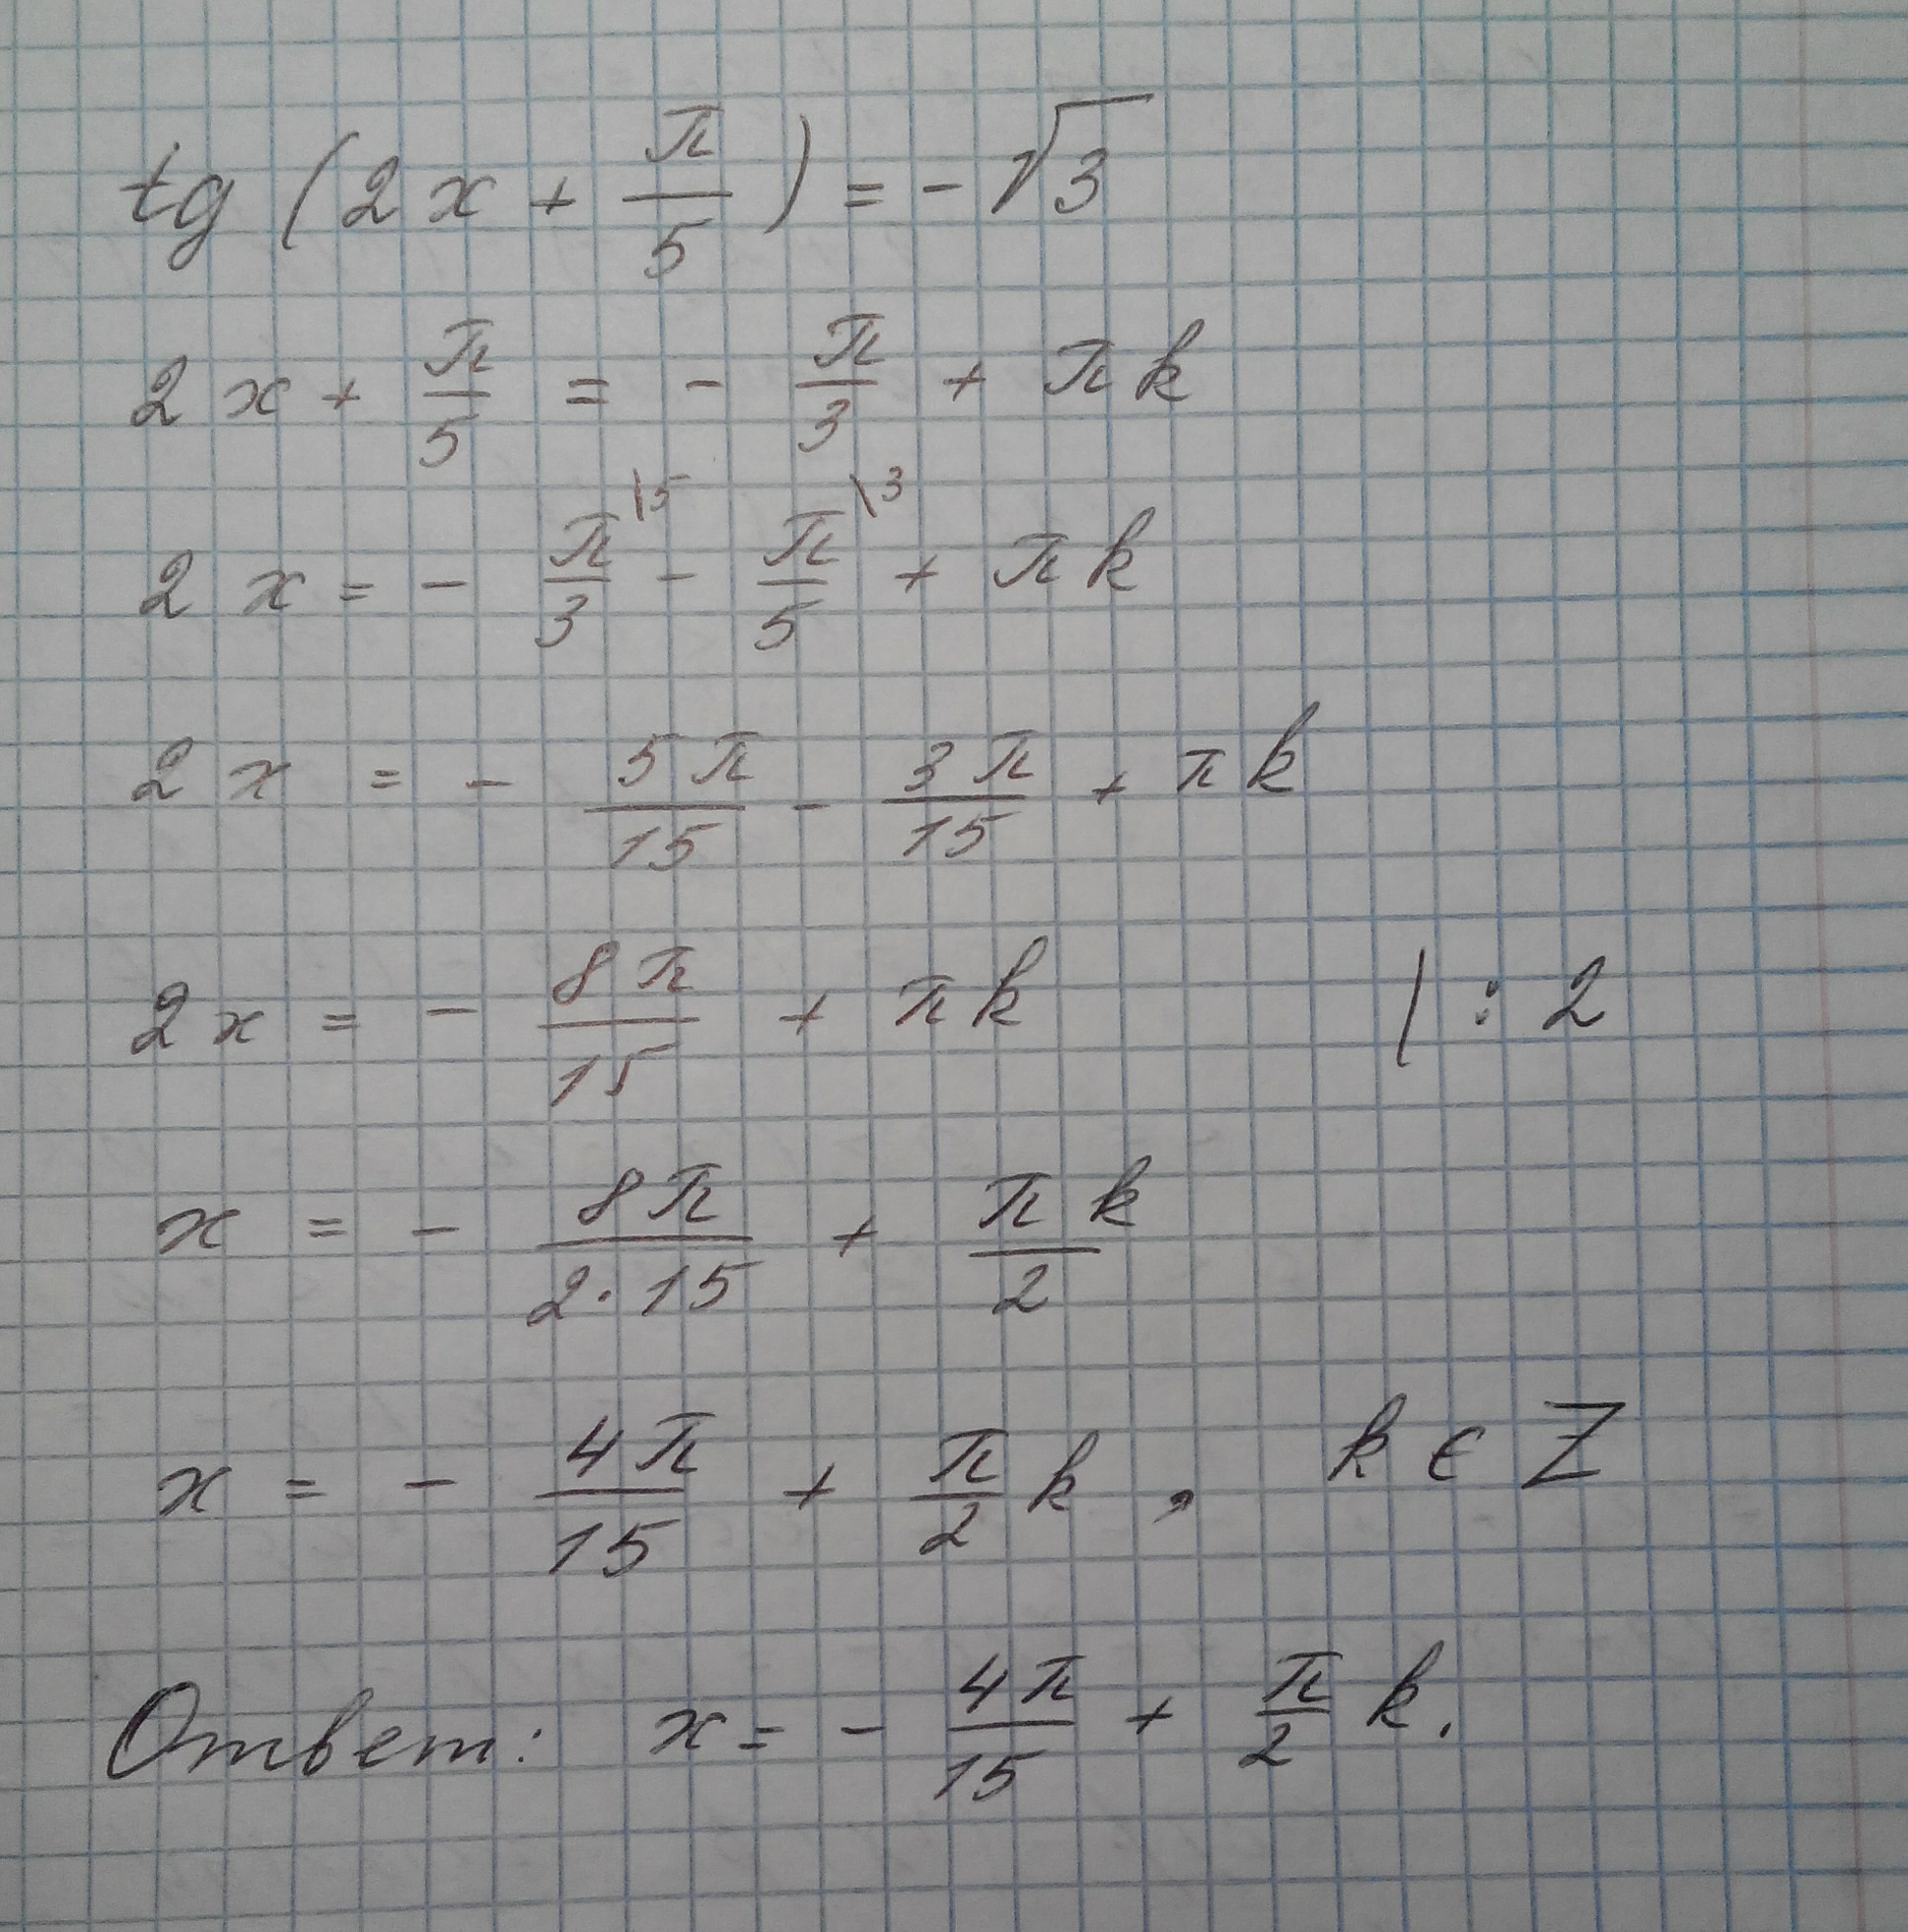 tg (2x + π/5) = -√3
2x + π/5 = - π/3 + πk
2x = - π/3 \5 - π/5 \3 + πk
2x = - 5π/15 - 3π/15 + πk
2x = - 8π/15 + πk | : 2
x = - 8π/2·15 + πk/2
x = - 4π/15 + π/2 k, k ∈ Z
Ответ: x = - 4π/15 + π/2 k.